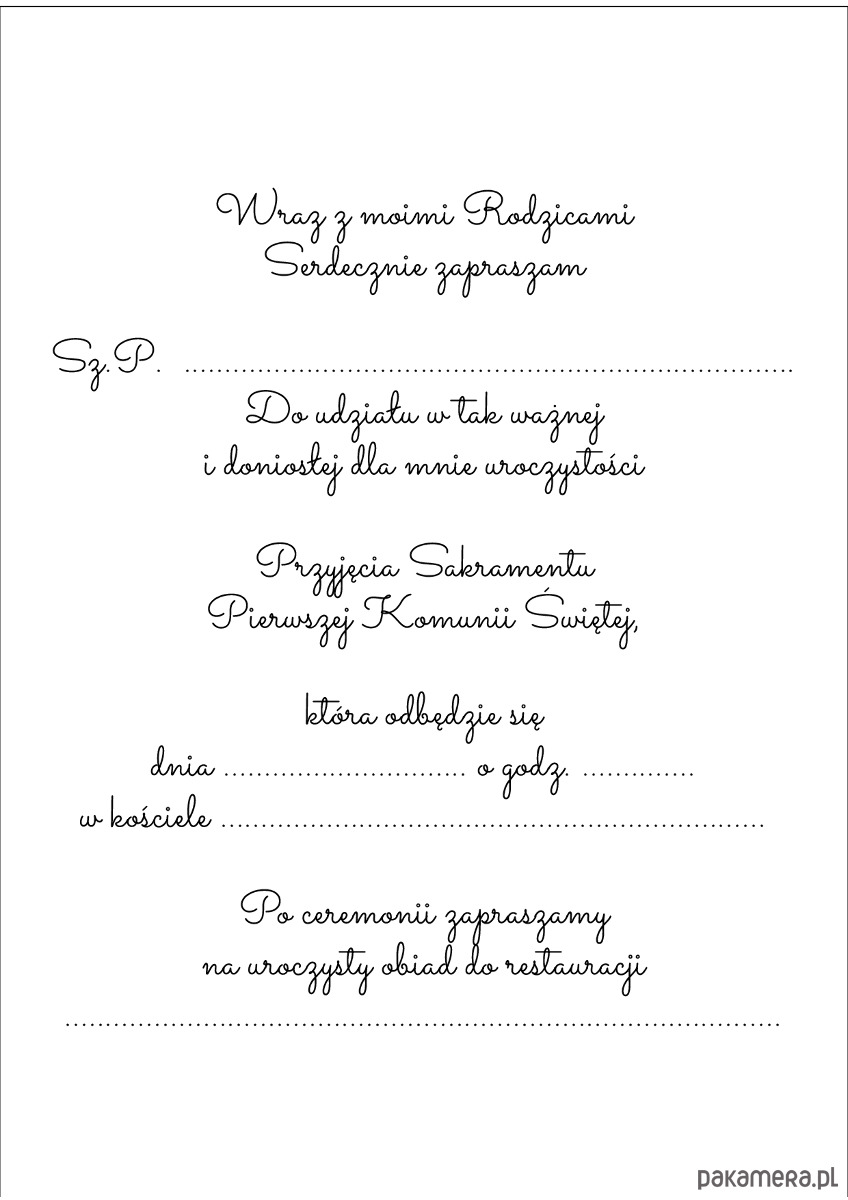 Wraz z moimi Rodzicami
Serdecznie zapraszam
Sz.P. ...........................................................................
Do udziału w tak ważnej
i doniosłej dla mnie uroczystości
Przyjęcia Sakramentu
Pierwszej Komunii Świętej,
która odbędzie się
dnia .............................. o godz. ..............
w kościele ...................................................................
Po ceremonii zapraszamy
na uroczysty obiad do restauracji
........................................................................................
pakamera.pl